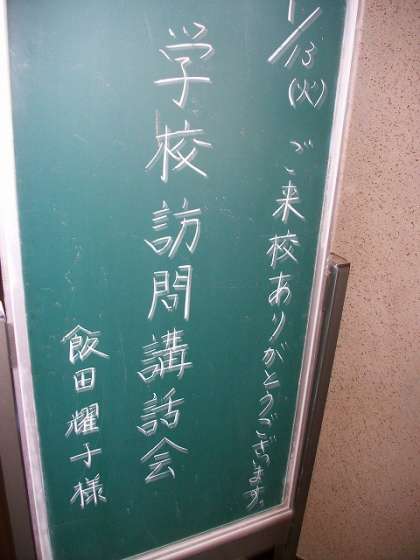 1/13(火) ご来校ありがとうございます。
学校訪問講話会
飯田耀子様